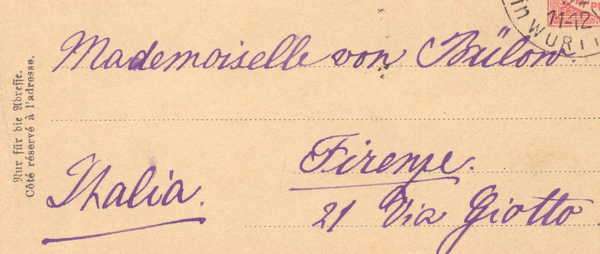 11-12
in WÜRTT
Mademoiselle von Bülow.
Nur für die Adresse.
Côté réservé à l'adresse.
Firenze.
Ithalia.
21 Via Giotto